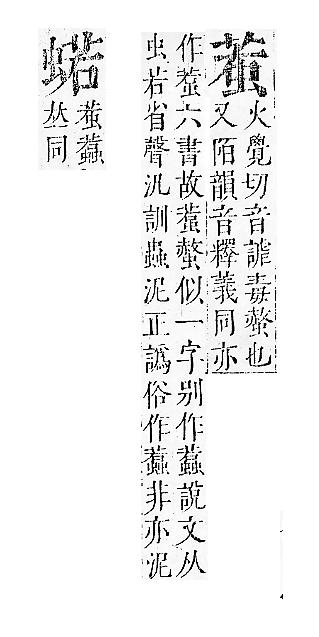 䖧
火覺切音謔毒螫也
又陌韻音釋義同亦
作䖧六書故䖧螫似一字别作蠚說文从
虫若省聲汎訓蟲泥正譌俗作蠚非亦泥
䖧蠚
𠀤同